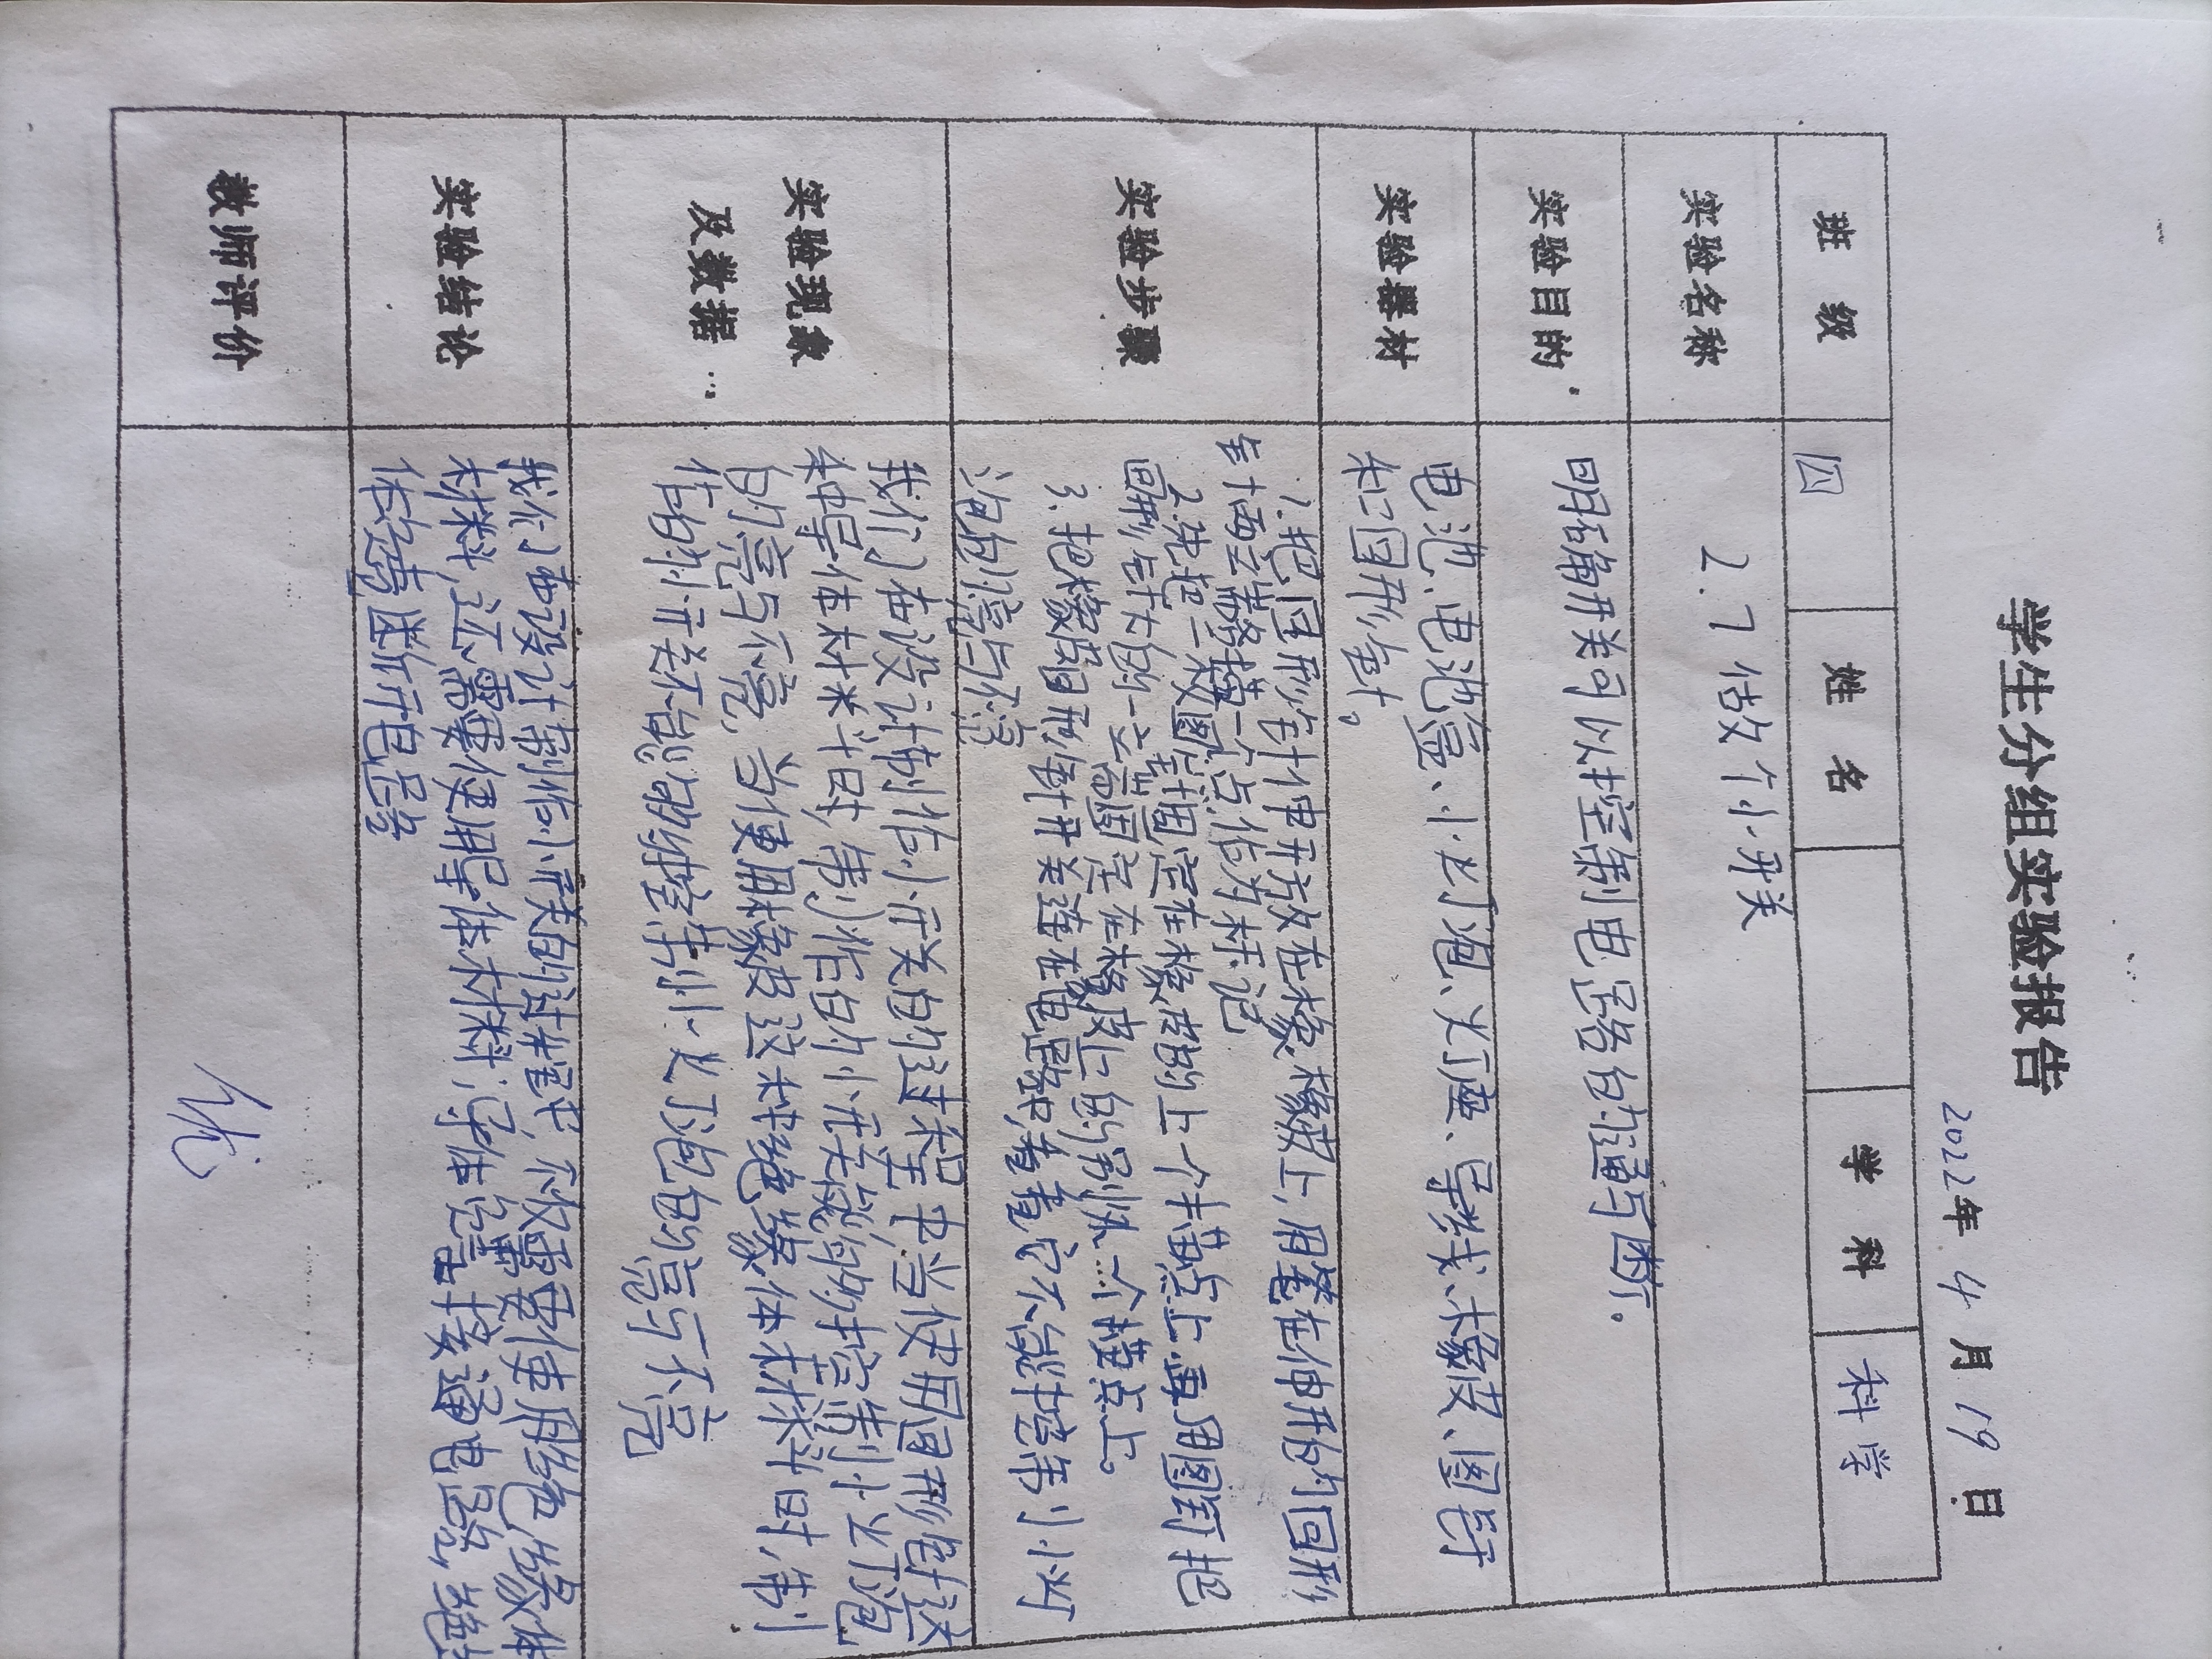 学生分组实验报告
2022年 4 月 19 日
班 级 四 姓 名 学 科 科学
实验名称 2.7 做个小开关
实验目的 明确开关可以控制电路的通与断。
实验器材 电池、电池盒、小灯泡、灯座、导线、橡皮、图钉
和回形针。
实验步骤 1.把回形针伸开放在橡橡皮上,用笔在伸开的回形
针两端描二个点,作为标记
2.先把一枚图钉固定在橡皮的上一个描点上,再用图钉把
回形针的一端固定在橡皮上的另外一个描点上。
3.把橡皮回形针开关连在电路中,看看它不能控制小灯
泡的亮与不亮
实验现象
及数据
我们在设计制作小开关的过程中,当使用回形针这
种导体材料时,制作的小开关能够控制小灯泡
的亮与不亮,当使用橡皮这种绝缘体材料时,制
作的开关不能够控制小灯泡的亮与不亮
实验结论 我们在设计制作小开关的过程中,不仅需要使用绝缘体
材料,还需要使用导体材料,导体能接通电路,绝缘
体能断开电路
教师评价 优